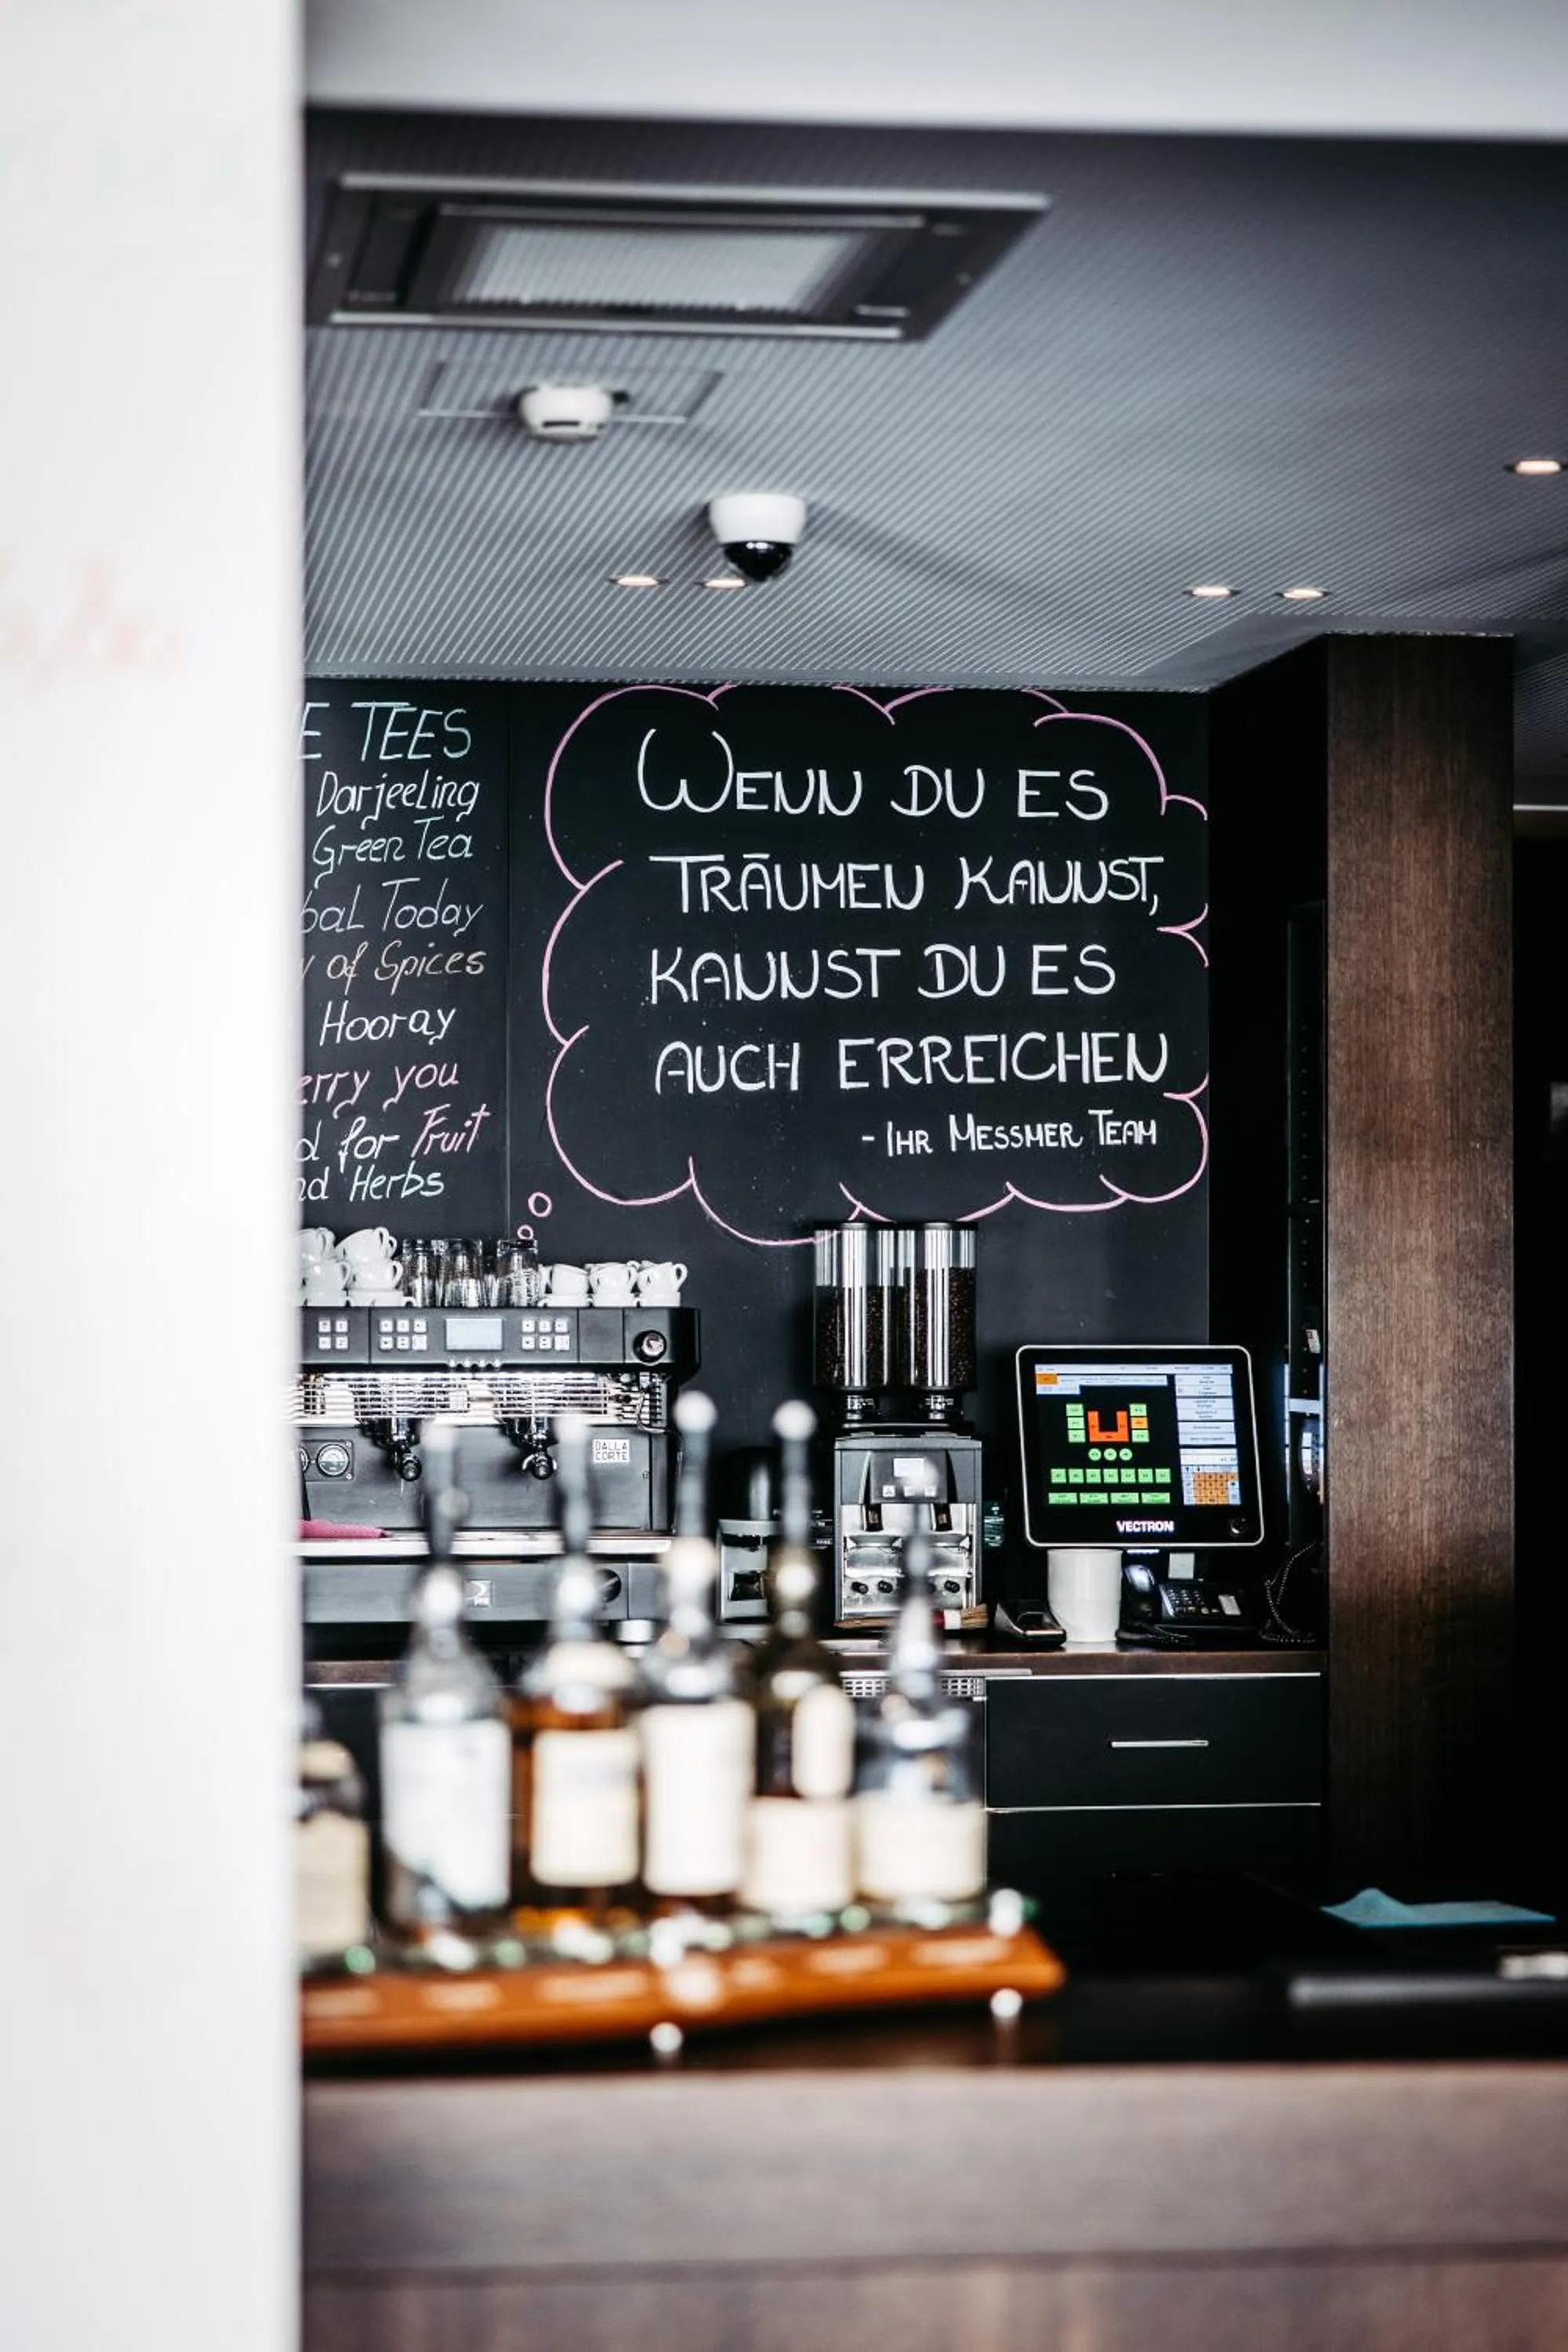 E TEES
Darjeeling
Green Tea
bal Today
of Spices
Hooray
erry you
d for Fruit
nd Herbs
WENN DU ES
TRĀUMEN KANNST,
KANNST DU ES
AUCH ERREICHEN
- IHR MESSMER TEAM
DALLA
CORTE
VECTRON